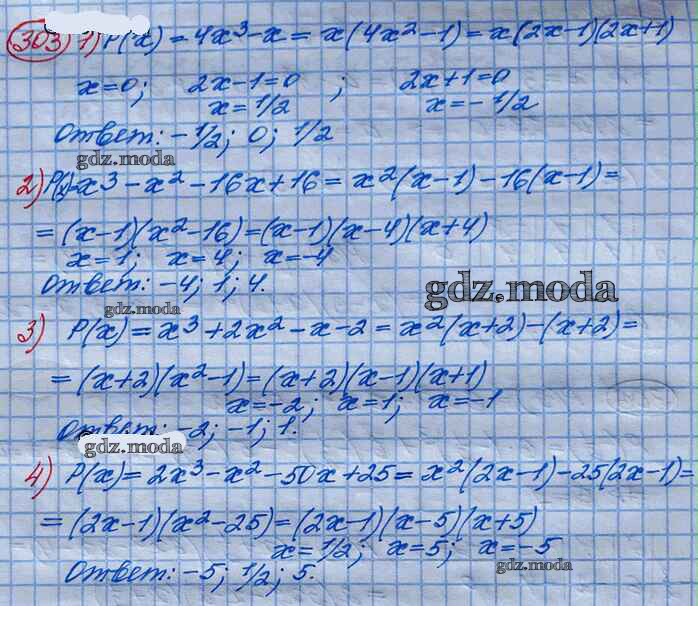 303) 1) P(x) = 4x³ - x = x(4x² - 1) = x(2x-1)(2x+1)
x=0; 2x-1=0 ; 2x+1=0
x=1/2 x=-1/2
Ответ: -1/2; 0; 1/2
gdz.moda
2) P(x)=x³ - x² - 16x + 16 = x²(x-1) - 16(x-1) =
= (x-1)(x²-16) = (x-1)(x-4)(x+4)
x=1; x=4; x=-4
Ответ: -4; 1; 4.
gdz.moda
gdz.moda
3) P(x) = x³ + 2x² - x - 2 = x²(x+2) - (x+2) =
= (x+2)(x²-1) = (x+2)(x-1)(x+1)
x=-2; x=1; x=-1
Ответ: -2; -1; 1.
gdz.moda
4) P(x) = 2x³ - x² - 50x + 25 = x²(2x-1) - 25(2x-1) =
= (2x-1)(x²-25) = (2x-1)(x-5)(x+5)
x=1/2; x=5; x=-5
Ответ: -5; 1/2; 5.
gdz.moda